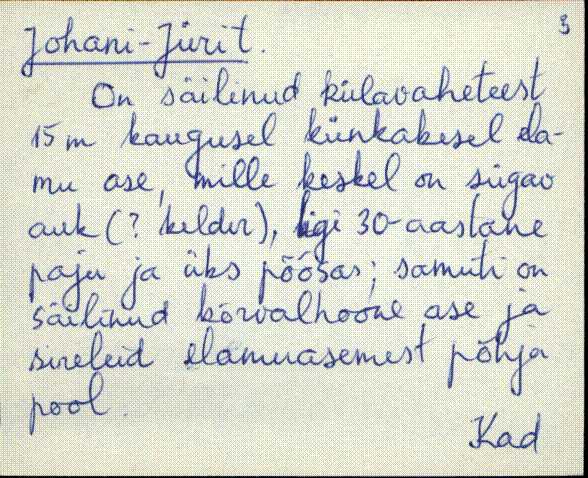 3
Johani-Jürit.
On säilinud külavaheteest
15 m kaugusel künkakesel ela-
mu ase, mille keskel on sügav
auk (? kelder), ligi 30-aastane
paju ja üks põõsas; samuti on
säilinud kõrvalhoone ase ja
sireleid elamuasemest põhja
pool.
Kad